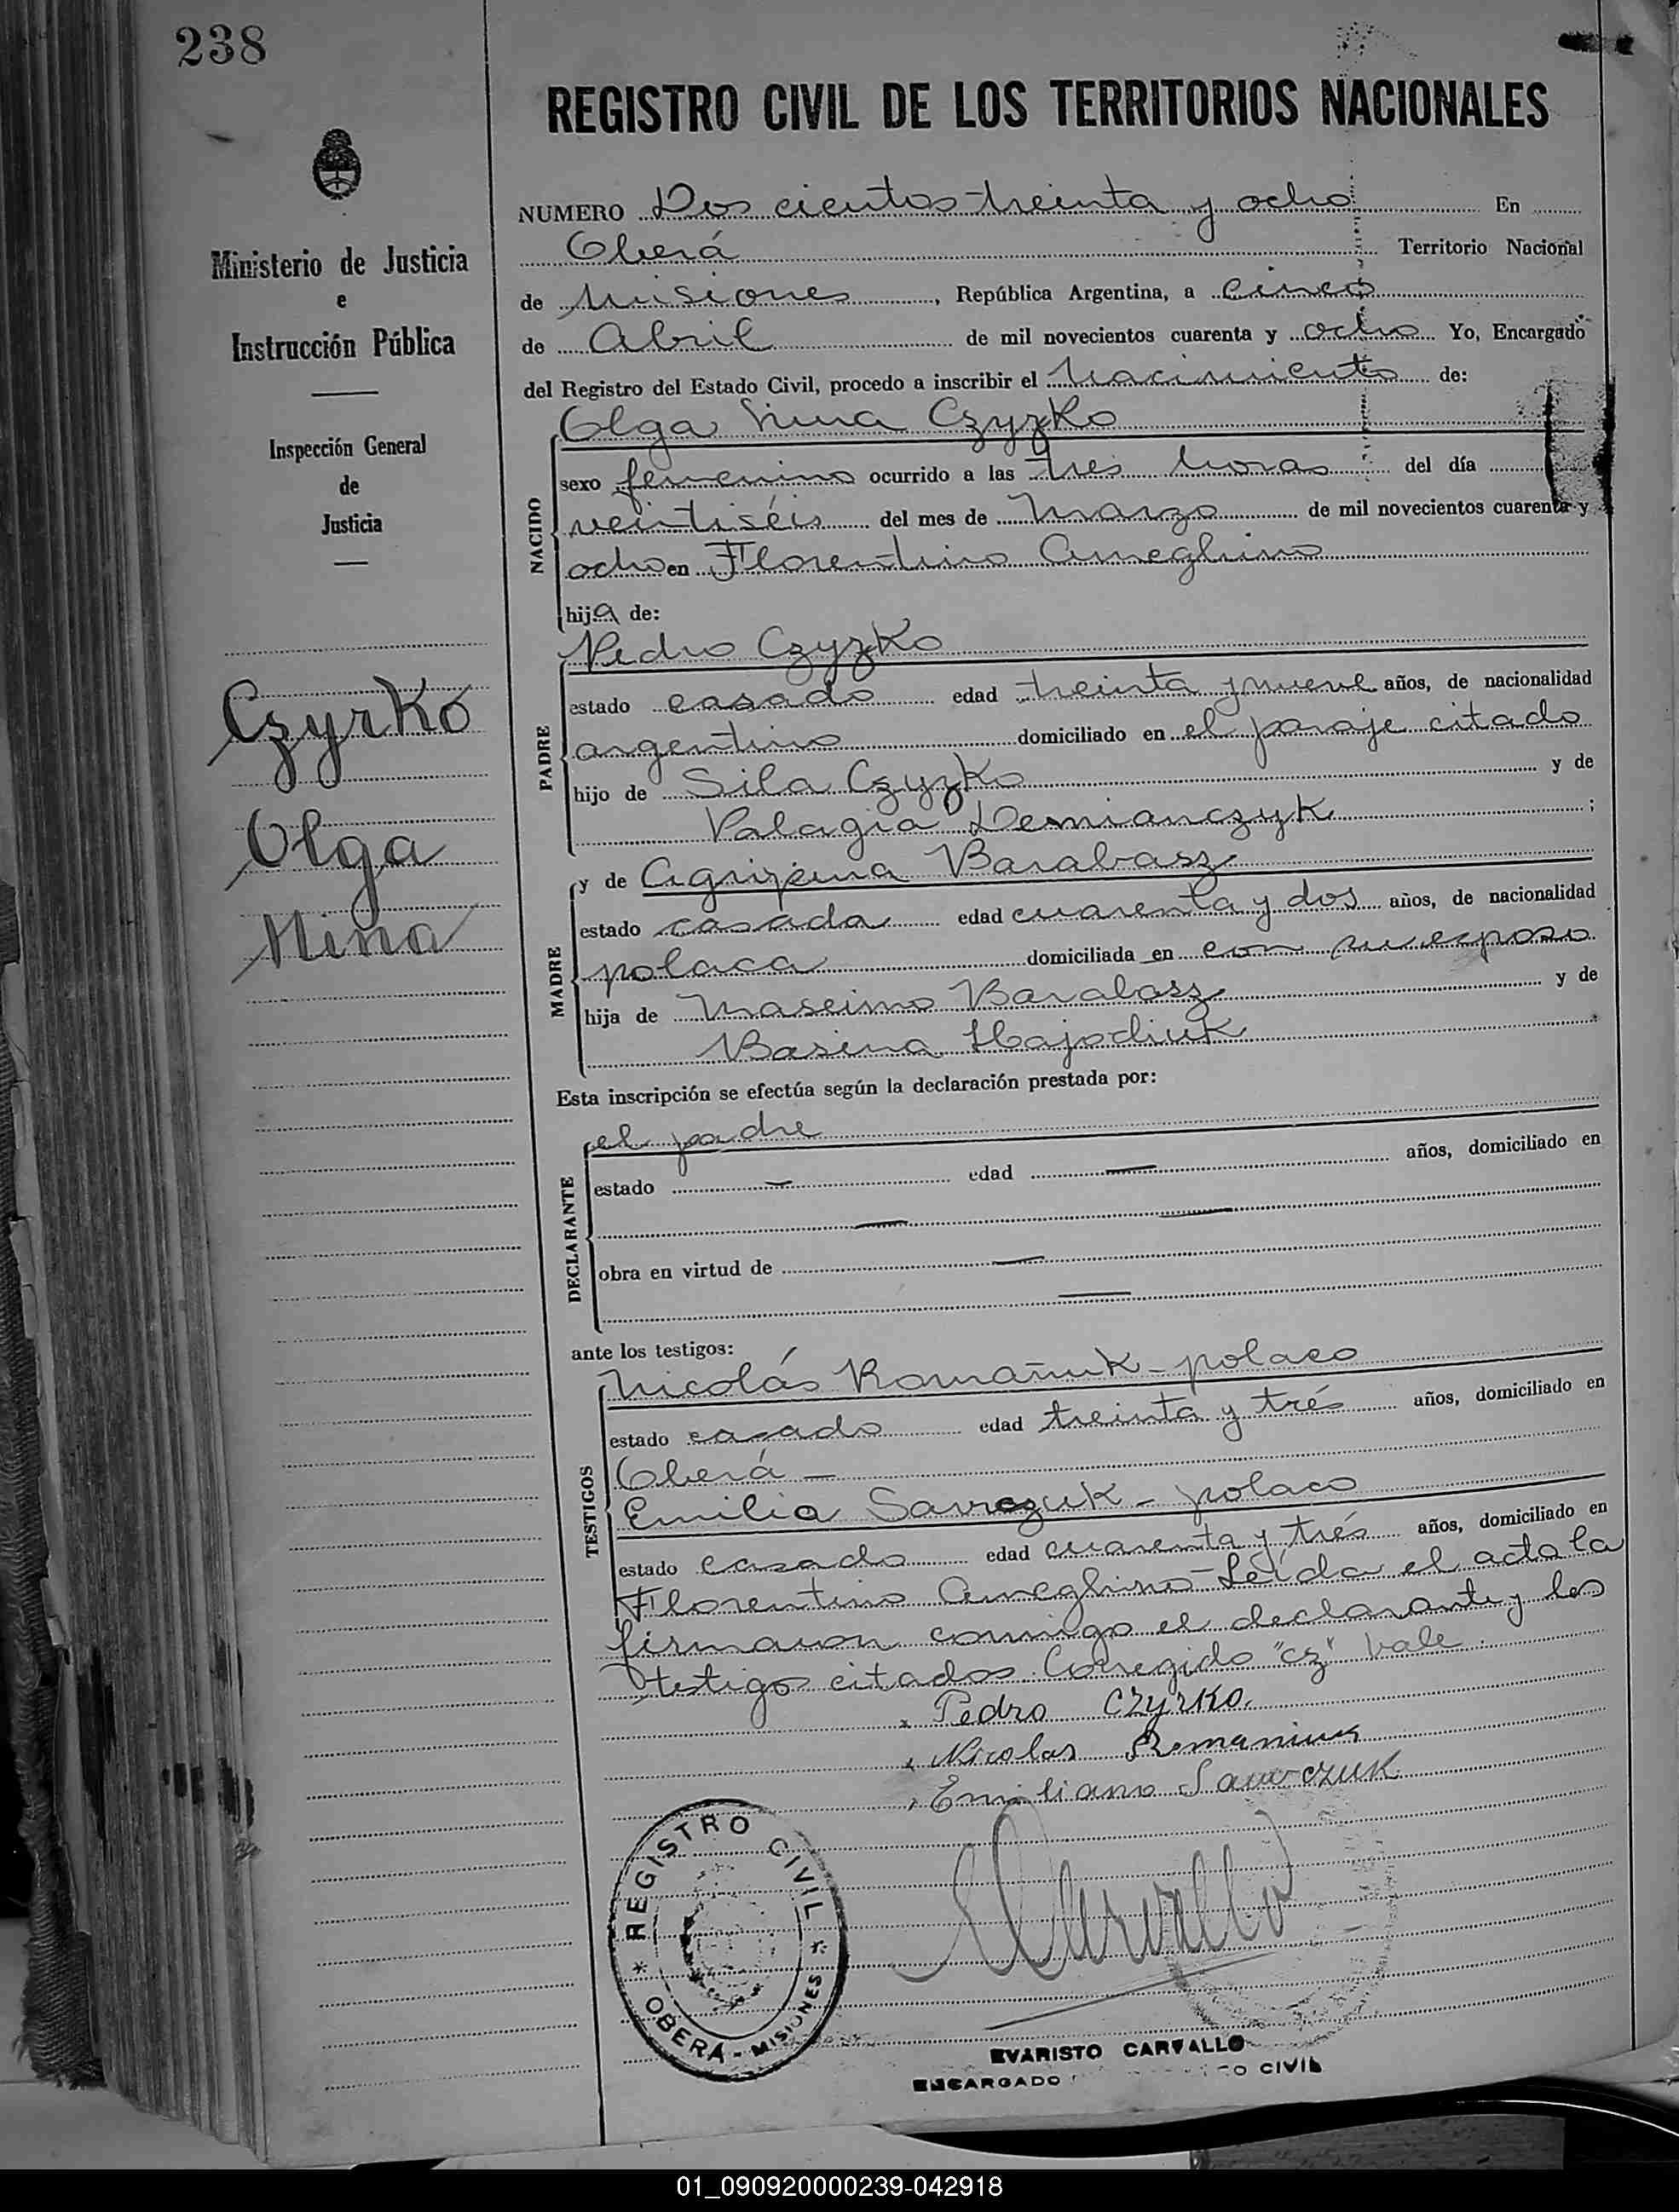 238
REGISTRO CIVIL DE LOS TERRITORIOS NACIONALES
Ministerio de Justicia
e
Instrucción Pública
Inspección General
de
Justicia
Czyrko
Olga
Nina
NUMERO Dos cientos treinta y ocho En
Oberá Territorio Nacional
de Misiones, República Argentina, a cinco
de Abril de mil novecientos cuarenta y ocho Yo, Encargado
del Registro del Estado Civil, procedo a inscribir el Nacimiento de:
NACIDO
Olga Nina Czyzko
sexo femenino ocurrido a las tres horas del día
veintiséis del mes de Marzo de mil novecientos cuarenta y
ocho en Florentino Ameghino
hija de:
PADRE
Pedro Czyzko
estado casado edad treinta y nueve años, de nacionalidad
argentino domiciliado en el paraje citado
hijo de Sila Czyzko y de
Palagia Demianczyk;
MADRE
y de Agripina Barabasz
estado casada edad cuarenta y dos años, de nacionalidad
polaca domiciliada en con su esposo
hija de Maseimo Barabasz y de
Basina Hajodiuk
Esta inscripción se efectúa según la declaración prestada por:
DECLARANTE
el padre
estado — edad — años, domiciliado en
— —
obra en virtud de —
—
ante los testigos:
TESTIGOS
Nicolás Romañuk - polaco
estado casado edad treinta y trés años, domiciliado en
Oberá -
Emilia Savczuk - polaco
estado casado edad cuarenta y trés años, domiciliado en
Florentino Ameghino - Leída el acta la
firmaron conmigo el declarante y los
testigos citados. Corregido "cz" Vale.
Pedro CZyrKo.
Nicolas Romaniuk
Emiliano Sawczuk
REGISTRO CIVIL
OBERÁ - MISIONES
EVARISTO CARVALLO
ENCARGADO CIVIL
01_090920000239-042918